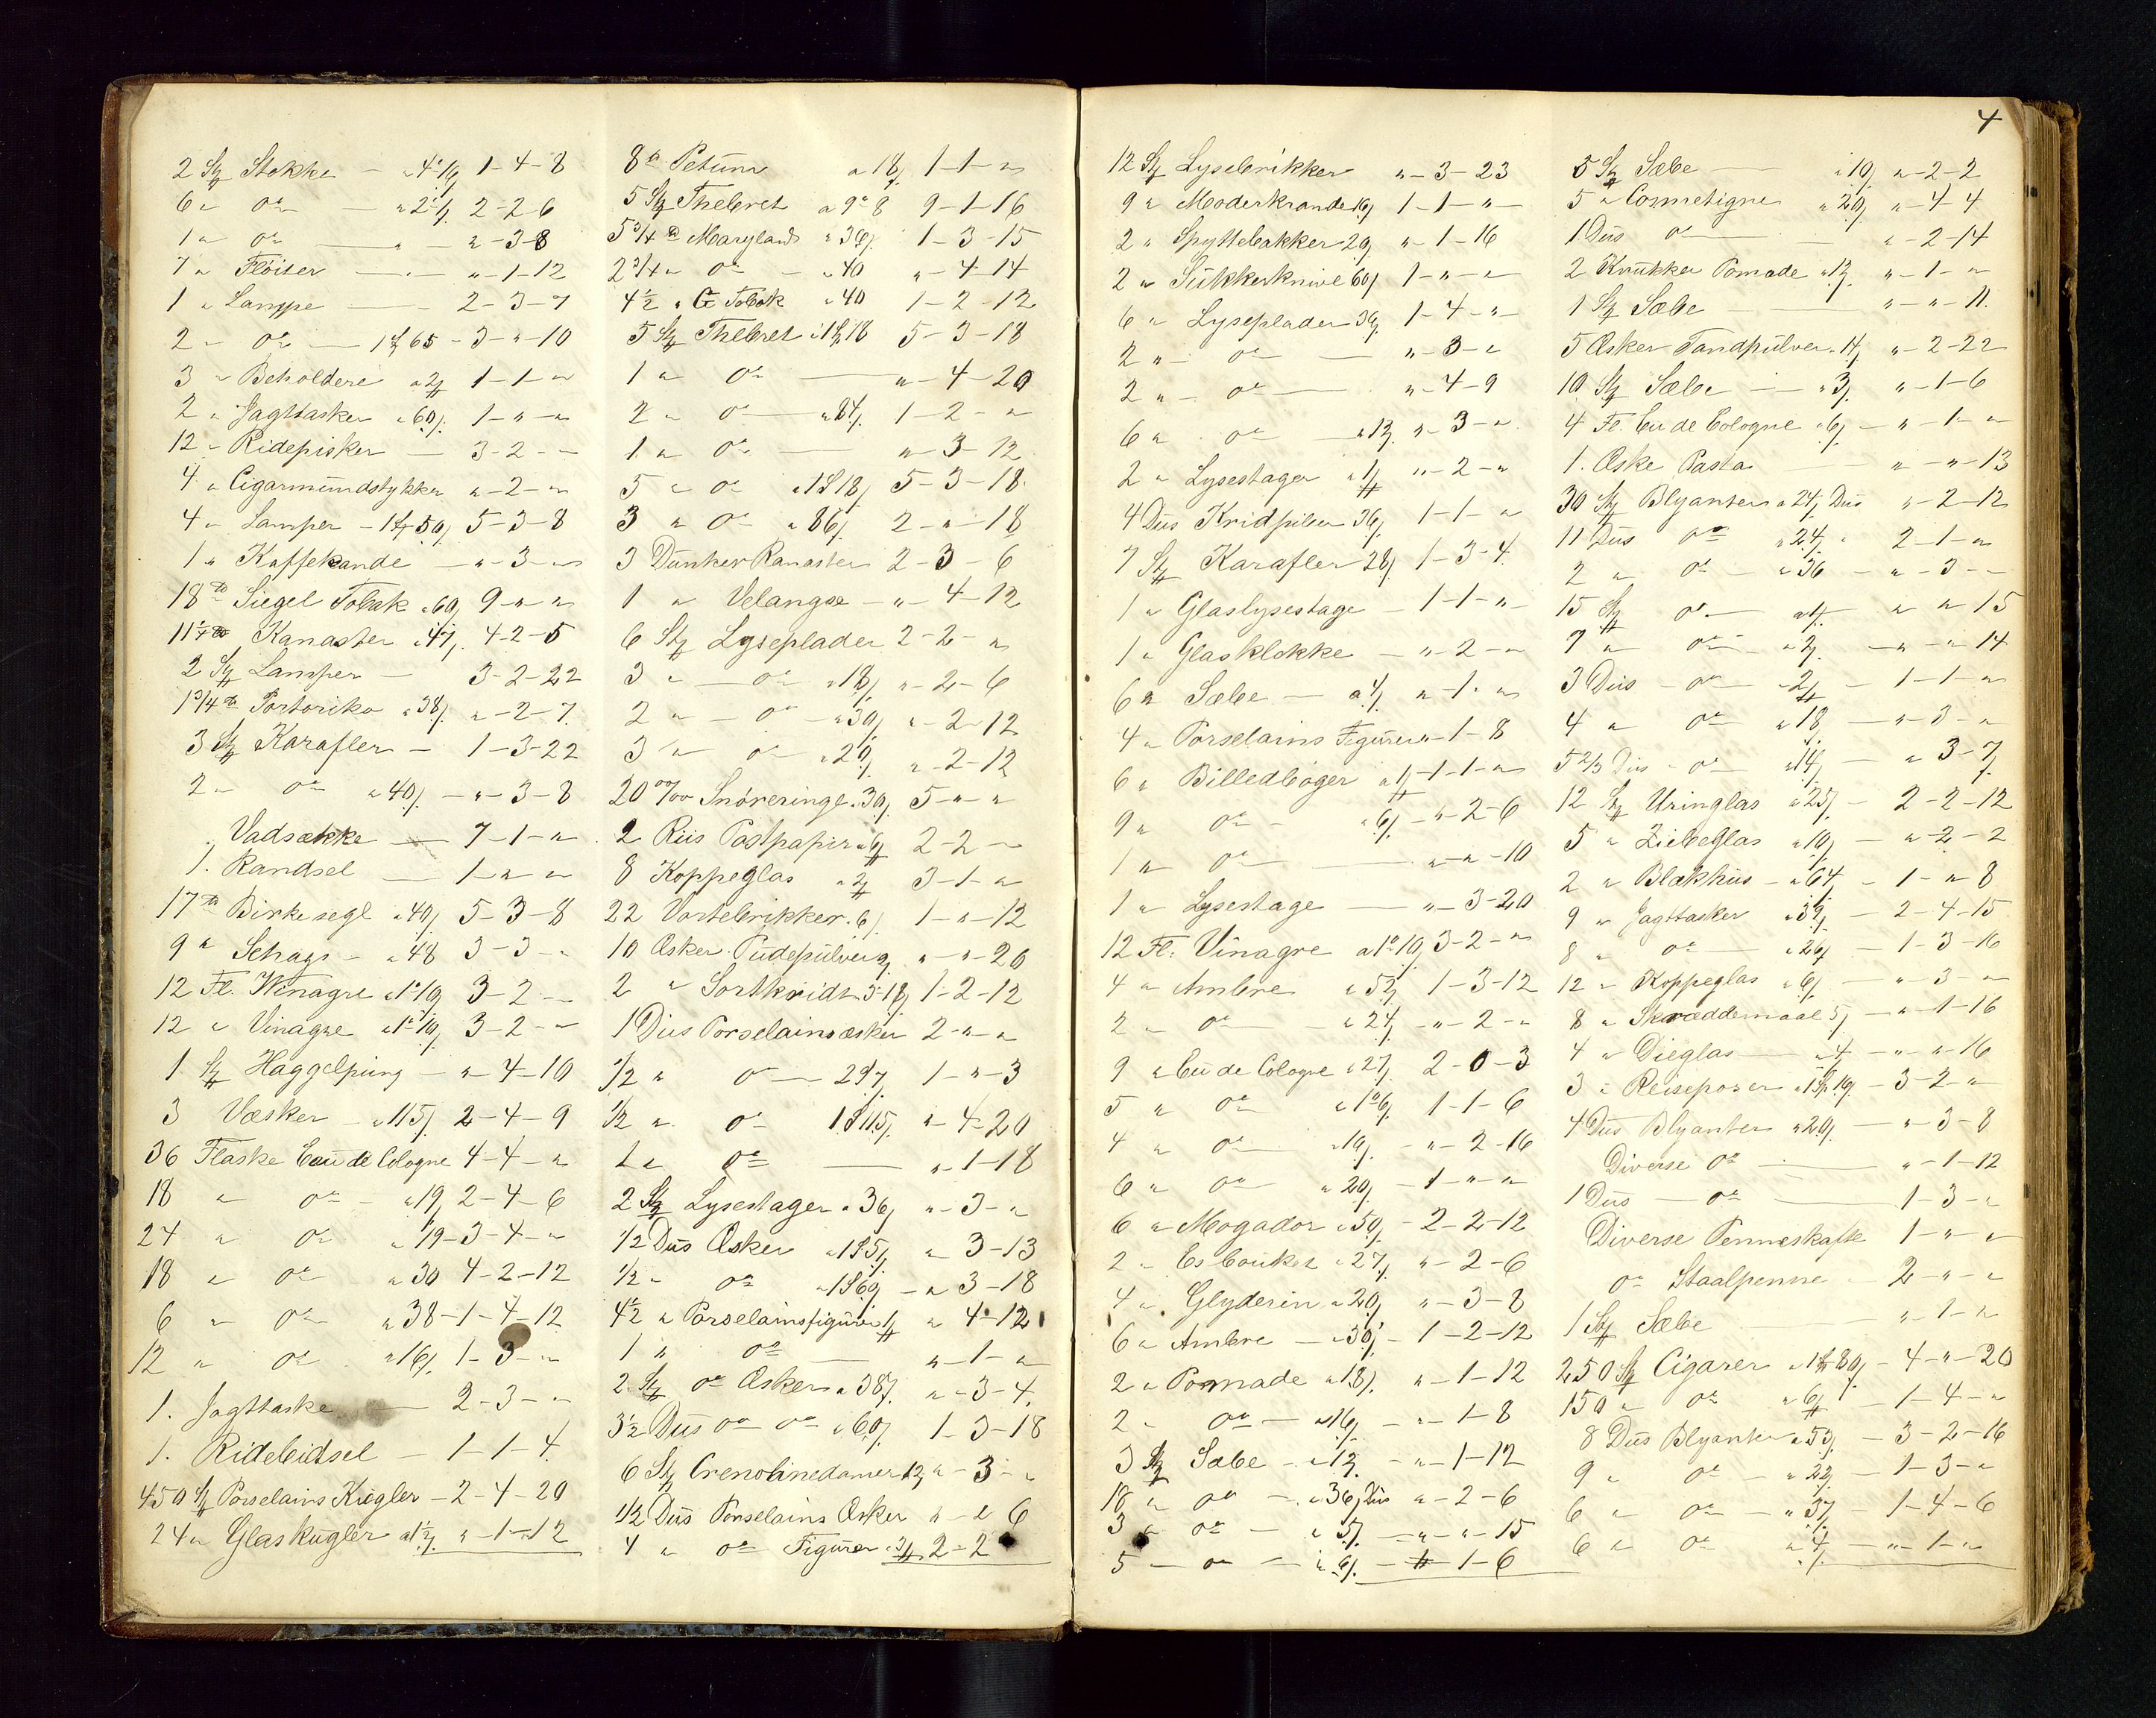 2 Stk Stokke — a 4 1-4-8
6 " do — 2-2-6
1 " do — " - " -3-8
7 " Fløiter — "-1-12
1 " Lampe — 2-3-7
2 " do — 65 - 3-"-10
3 " Beholdere a 2 1-1-"
2 " Jagttasker a 60 1-"-"
12 " Ridepisker — 3-2-"
4 " Cigarmundstykker "-2-"
4 " Lamper - 50 5-3-8
1 " Kaffekande — "-3-"
18 Siegel Tobak a 60 9-"-"
Kanaster a 47 4-2-5
2 Stk Lamper — 3-2-22
1 3/4 Portoriko a 38 "-2-7
3 Stk Karafler — 1-3-22
2 " do a 40 — "-3-8
Vadsække — 7-1-"
1. Randsel — 1-"-"
17 Birkesegl a 40 5-3-8
9 " Schags - a 48 3-3-"
12 Fl. Winagre 3-2-"
12 " Vinagre 3-2-"
1 Stk Haggelpung — "-4-10
3 Væsker - a 115 2-4-9
36 Flaske Eau de Cologne 4-4-"
18 " do a 19 2-4-6
24 " do a 19-3-4-"
18 " do a 30 4-2-12
6 " do a 38-1-4-12
12 " do a 16 1-3-"
1. Jagttaske — 2-3-"
1. Ridebidsel — 1-1-4
450 Stk Porselains Kugler - 2-4-20
24 " Glaskugler "-1-12
8 Petum a 18 1-1-"
5 Stk Thebret a 9 8 9-1-16
5 3/4 Maryland a 36 1-3-15
2 3/4 " do - a 40 "-4-14
4 1/2 " G Tobak a 40 1-2-12
5 Stk Thebret 18 5-3-18
1 " do — "-4-20
2 " do — a 84 1-2-"
1 " do — "-3-12
5 " do 18 5-3-18
3 " do a 86 2-"-18
3 Dunker Kanaster 2-3-6
1 " Velangse - "-4-12
6 Stk Lyseplader 2-2-"
3 " — do a 18 "-2-6
2 " — do a 30 "-2-12
3 " do a 20 "-2-12
20 Snøreringe a 30 5-"-"
2 Riis Postpapir a 6 2-2-"
8 Koppeglas a 2 3-1-"
22 Vortebrikker a 6 1-"-12
10 Æsker Pudepulver "-"-20
2 " Sortkridt 1-2-12
1 Dus Porselainsæsker 2-"-"
1/2 " do — 1-"-3
1/2 " do 115 "-4-20
do — "-1-18
2 Stk Lysestager a 36 "-3-"
1/2 Dus Æsker "-3-13
1/2 " do - "-3-18
4 1/2 " Porselainsfigurer "-4-12
1 " do — "-1-"
2 Stk do Æsker a 38 "-3-4
3 1/2 Dus do do a 60 1-3-18
6 Stk Crenolinedamer 12 "-3-"
1/2 Dus Porselains Æsker "-"-6
4 " do Figurer 2-2
4
12 Stk Lysebrikker "-3-23
9 " Moderkrande 16 1-1-"
2 " Spyttebakker 20 "-1-16
2 " Sukkerknive 60 1-"-"
6 " Lyseplader 36 1-4-"
2 " do — "-3-"
2 " do — "-4-9
6 " do a 12 "-3-"
2 " Lysestager "-2-"
4 Dus Kridpiber 36 1-1-"
7 Stk Karafler 28 1-3-4
1 " Glaslysestage - 1-1-"
1 " Glasklokke — "-2-"
6 " Sæbe — a 4 "-1-"
4 " Porselains Figurer "-1-8
6 " Billedbøger 1-1-"
9 " do - a 6 - "-2-6
1 " do — "-"-10
1 " Lysestage — "-3-20
12 Fl. Vinagre 3-2-"
4 " Ambre a 52 1-3-12
2 " do a 24 - "-2-"
9 " Eau de Cologne a 27 2-0-3
5 " do 1-1-6
4 " do a 16 - "-2-16
6 " do a 20 - 1-"-"
6 " Mogador a 50 - 2-2-12
2 " Esbouket a 27 "-2-6
4 " Glyderin a 20 "-3-8
6 " Ambre — a 30 - 1-2-12
2 " Pomade a 18 "-1-12
2 " do — a 16 - "-1-8
3 Stk Sæbe — a 12 - "-1-12
18 " do — a 36 Dus "-2-6
3 " do — a 5 - "-"-15
5 — do — a 6 - "-1-6
5 Stk Sæbe — a 10 "-2-2
5 " Cosmetigne a 20 "-4-4
1 Dus do — "-2-14
2 Krukker Pomade a 12 "-1-"
1 Stk Sæbe — "-"-11
5 Æsker Tandpulver a 14 "-2-22
10 Stk Sæbe — a 3 "-1-6
4 Fl. Eau de Cologne a 6 - "-1-"
1. Æske Pasta "-"-13
30 Stk Blyanter a 24 Dus "-2-12
11 Dus do a 24 2-1-"
2 " do — a 36 - "-3-"
15 Stk do — "-"-15
7 " do — a 2 - "-"-14
3 Dus - do — 1-1-"
4 " do a 18 — "-3-"
5 2/3 Dus - do a 14 - "-3-7
12 Stk Uringlas a 25 - 2-2-12
5 " Ziebeglas a 10 - "-2-2
2 " Blækhus - a 64 - 1-"-8
9 " Jagttasker a 39 - 2-4-15
8 " do — a 26 - 1-3-16
12 " Koppeglas a 6 - "-3-"
8 " Skræddemaal 5 - "-1-16
4 " Dieglas — a 4 - "-"-16
3 " Reiseposer - 3-2-"
4 Dus Blyanter a 20 - "-3-8
Diverse do — "-1-12
1 Dus — do — 1-3-"
Diverse Penneskafte 1-"-"
do Staalpenne 2-"-"
1 Stk Sæbe "-1-"
250 Stk Cigarer 80 - 4-"-20
150 " do a 6 - 1-4-"
8 Dus Blyanter a 53 - 3-2-16
9 " do a 22 - 1-3-"
6 " do — a 37 - 1-4-6
6 " do a 4 - "-1-"